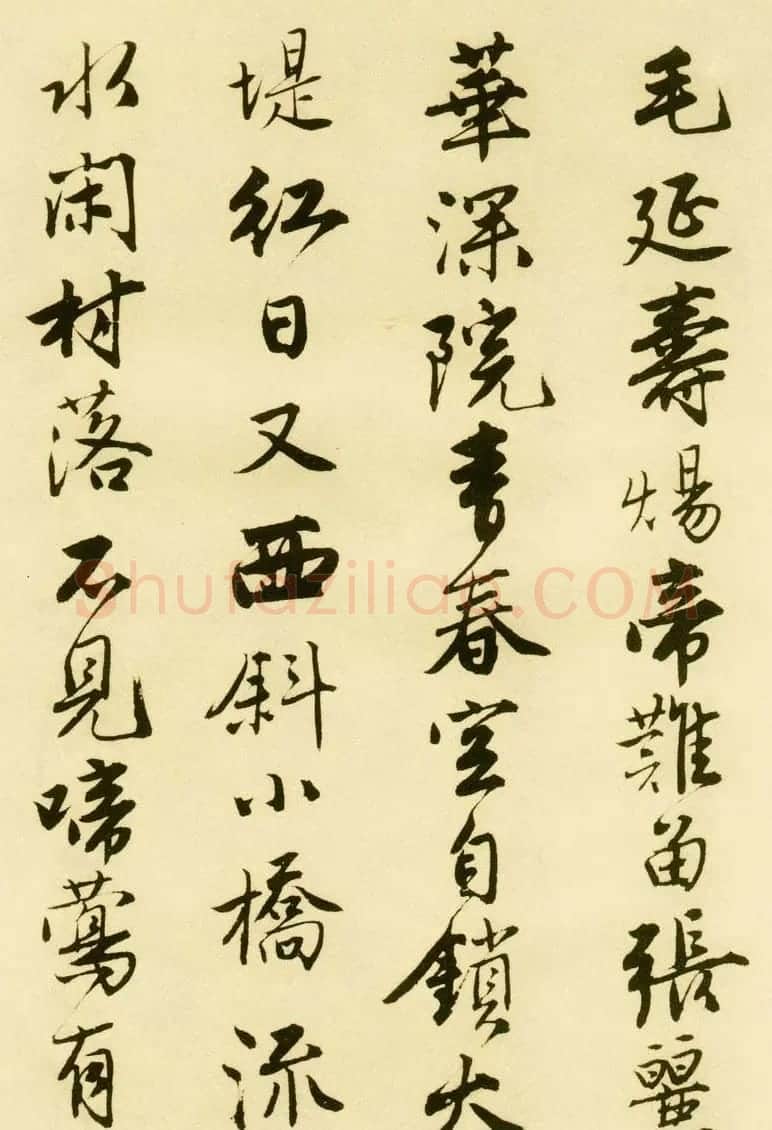 毛延壽煬帝難留張麗
華深院青春空自鎖大
堤紅日又西斜小橋流
水閑村落不見啼鶯有
Shufaziliao.COM